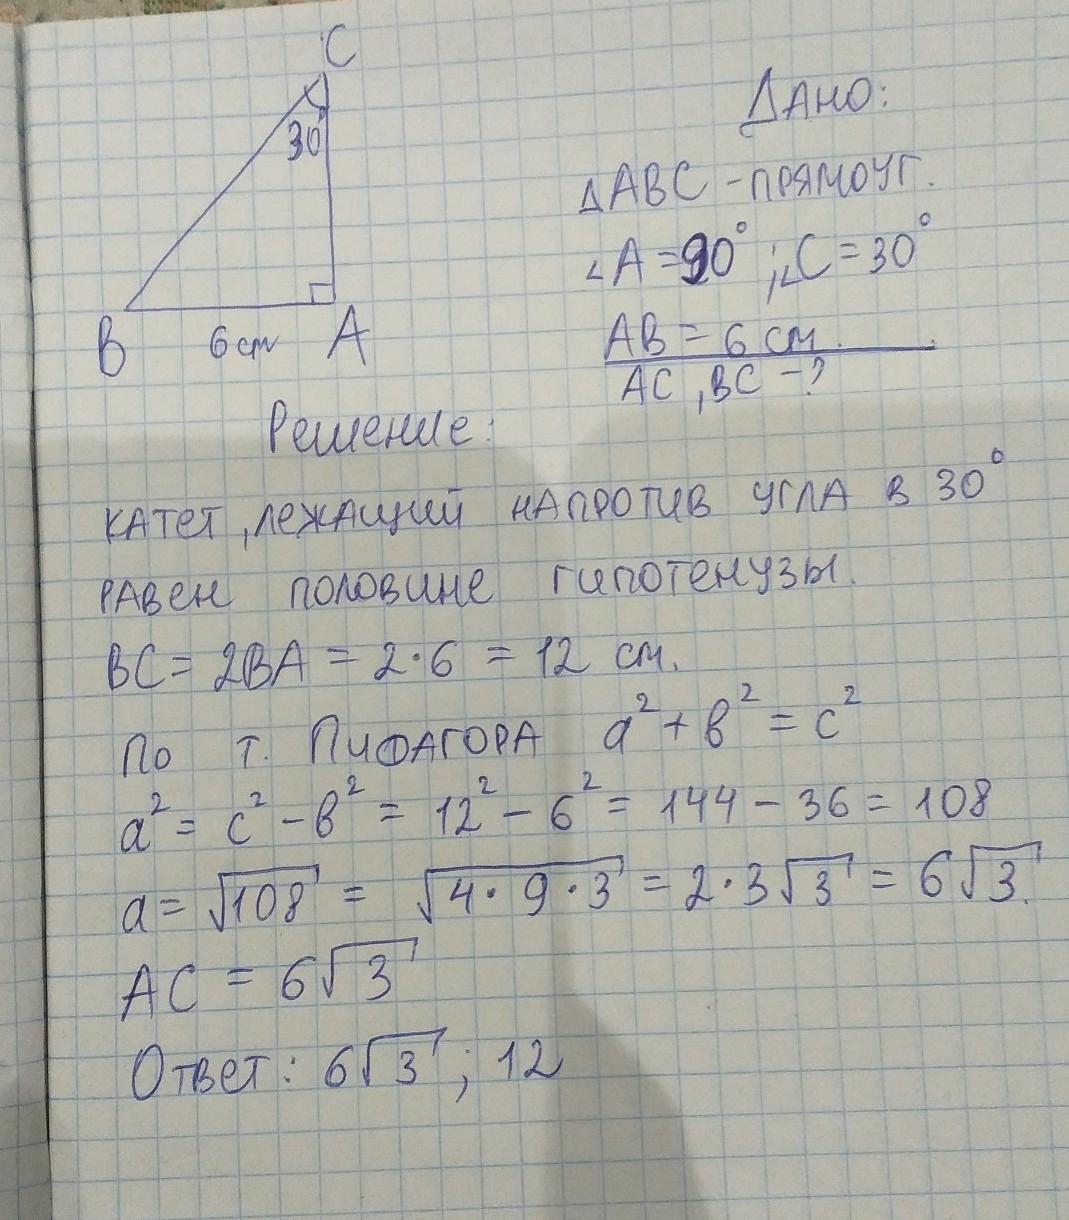 C
30
B 6 см A
Дано:
△ABC - прямоуг.
∠A = 90°; ∠C = 30°
AB = 6 см.
AC, BC - ?
Решение:
катет, лежащий напротив угла в 30°
равен половине гипотенузы.
BC = 2BA = 2·6 = 12 см.
По т. Пифагора a² + b² = c²
a² = c² - b² = 12² - 6² = 144 - 36 = 108
a = √108 = √4·9·3 = 2·3√3 = 6√3.
AC = 6√3
Ответ: 6√3; 12